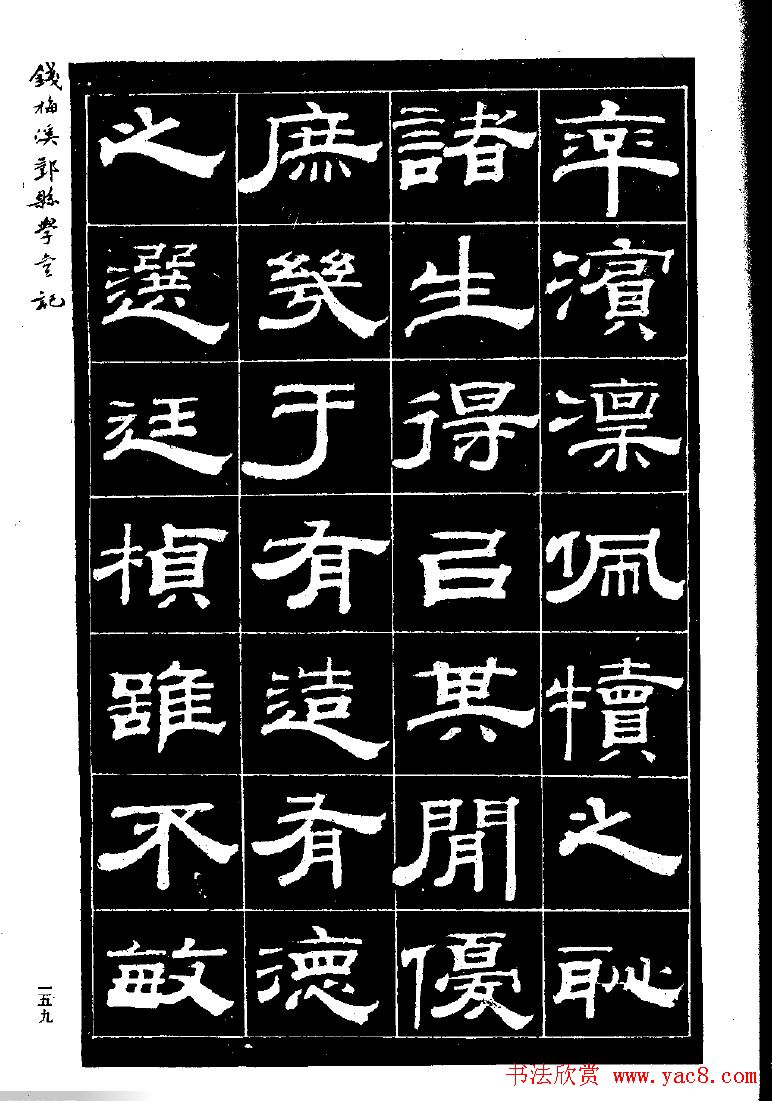 率濱凜佩犢之恥
諸生得㠯其閒優
庶幾于有造有德
之選廷楨雖不敏
錢梅溪鄞縣學宮記
一五九
书法欣赏 www.yac8.com